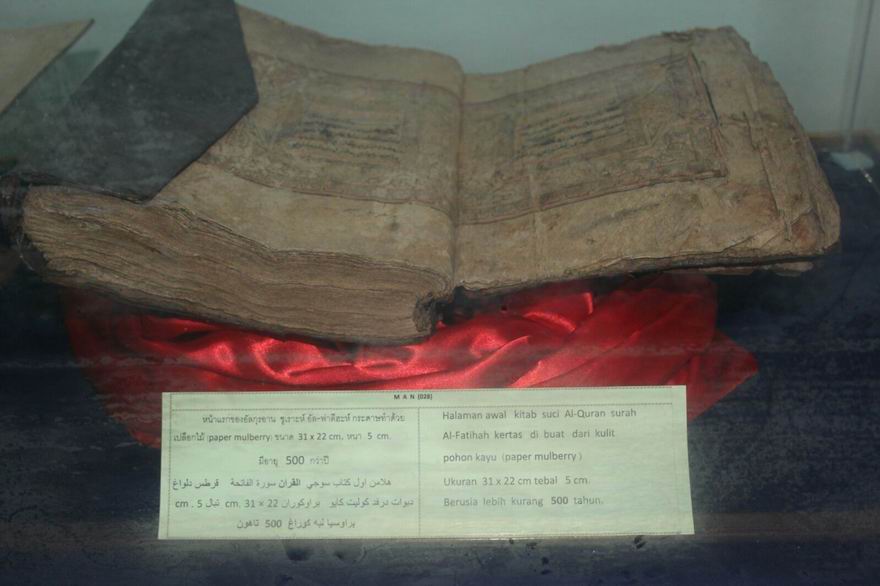 M A N (028)
หน้าแรกของอัลกุรอาน ซูเราะห์ อัล-ฟาตีฮะห์ กระดาษทำด้วย
เปลือกไม้ (paper mulberry) ขนาด 31 x 22 cm. หนา 5 cm.
มีอายุ 500 กว่าปี
هلامن اول كتاب سوچي القران سورة الفاتحة قرطس دلواغ
دبوات درفد كوليت كايو براوكوران 22 × 31 cm, تبال 5 cm.
براوسيا لبه كوراڠ 500 تاهون
Halaman awal kitab suci Al-Quran surah
Al-Fatihah kertas di buat dari kulit
pohon kayu (paper mulberry)
Ukuran 31 x 22 cm tebal 5 cm.
Berusia lebih kurang 500 tahun.